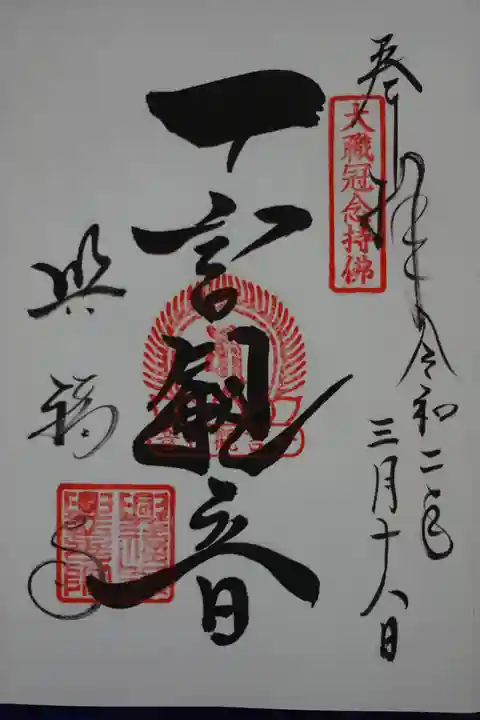 奉拝
大職冠念持佛
令和二年
三月十八日
一言観音
興福寺